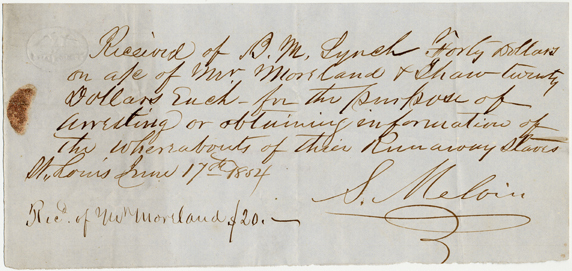 Received of B. M. Lynch Forty Dollars
on a/c of Mr. Moreland & Shaw twenty
Dollars Each - for the purpose of
arresting or obtaining information of
the whereabouts of their Runaway Slaves
St. Louis June 17th 1854
S. Melvin
Recd. of Mr Moreland $20.-